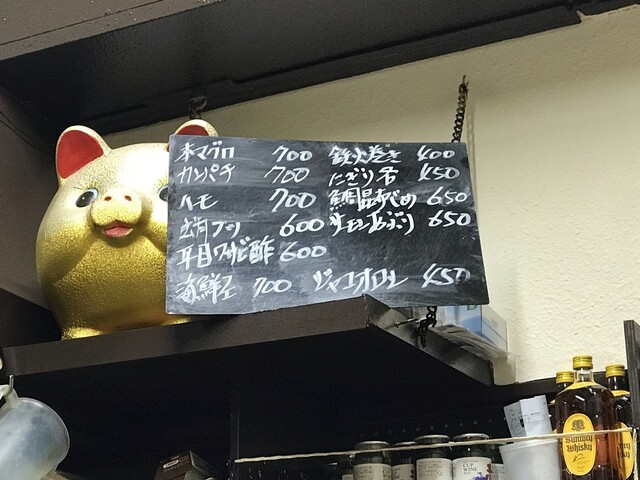 本マグロ 700
カンパチ 700
ハモ 700
600
平目ワサビ酢 600
海鮮 700
鉄火巻き 400
にぎり 450
鯛昆布じめ 650
サーモンあぶり 650
ジャコオロシ 450
Suntory
Whisky
CUP
WINE